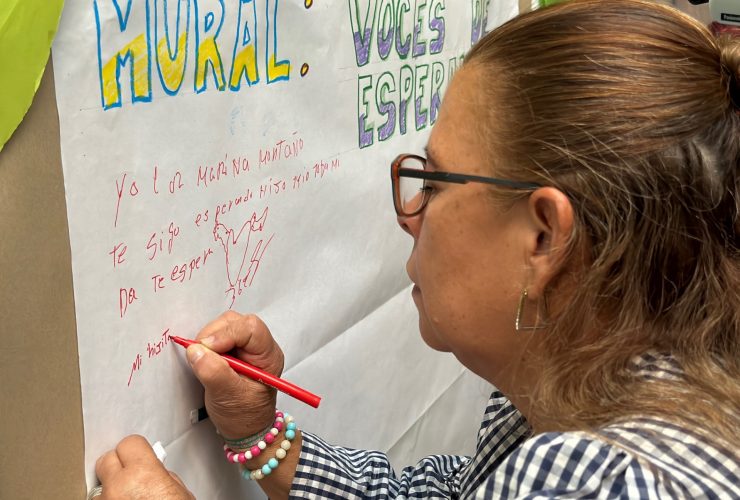 MURAL:
VOCES DE
ESPERA
Yo luz MARINA MONTAÑO
te sigo esperando Hijo mio toda mi
Da te espera
Mi hijito